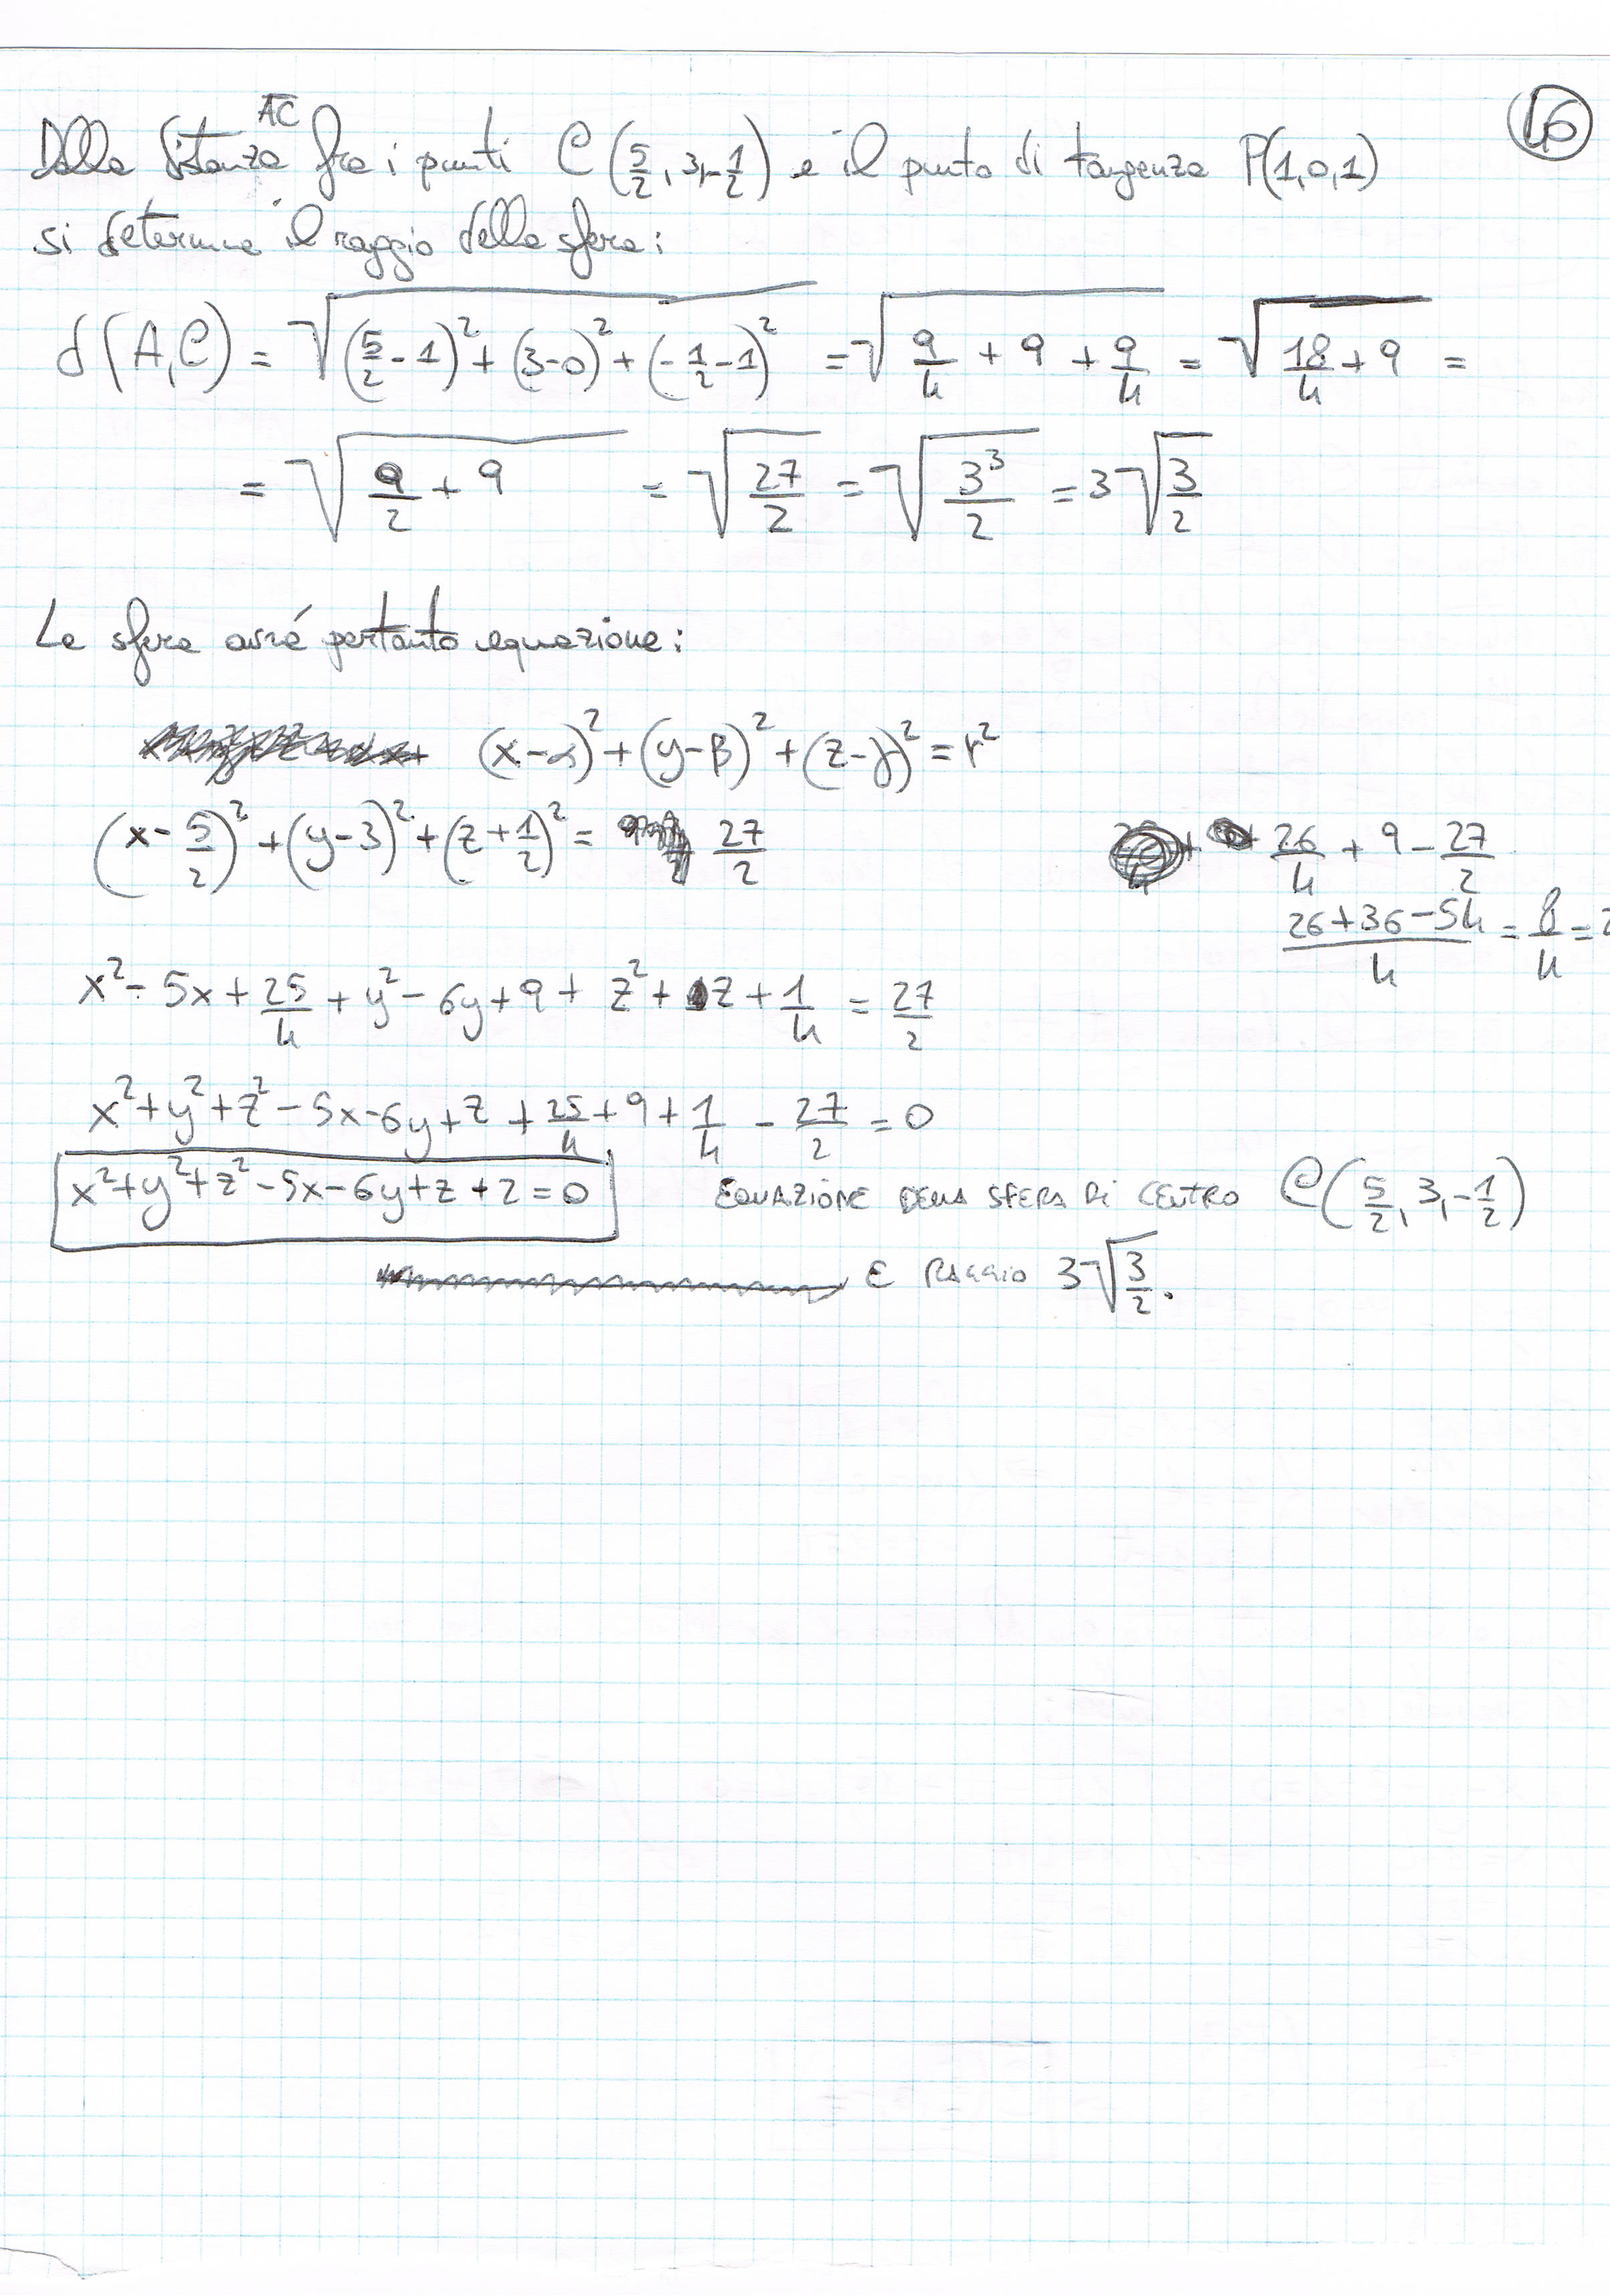 16
AC
Dalla distanza fra i punti C(5/2, 3, -1/2) e il punto di tangenza P(1,0,1)
si determina il raggio della sfera:
d(A,C) = √((5/2 - 1)² + (3-0)² + (-1/2 - 1)²) = √(9/4 + 9 + 9/4) = √(18/4 + 9) =
= √(9/2 + 9) = √(27/2) = √(3³/2) = 3√(3/2)
La sfera avrá pertanto equazione:
(x-α)² + (y-β)² + (z-γ)² = r²
(x - 5/2)² + (y-3)² + (z + 1/2)² = 27/2
26/4 + 9 - 27/2
(26+36-54)/4 = 8/4 = 2
x² - 5x + 25/4 + y² - 6y + 9 + z² + z + 1/4 = 27/2
x² + y² + z² - 5x - 6y + z + 25/4 + 9 + 1/4 - 27/2 = 0
x² + y² + z² - 5x - 6y + z + 2 = 0 EQUAZIONE DELLA SFERA DI CENTRO C(5/2, 3, -1/2)
E RAGGIO 3√(3/2).